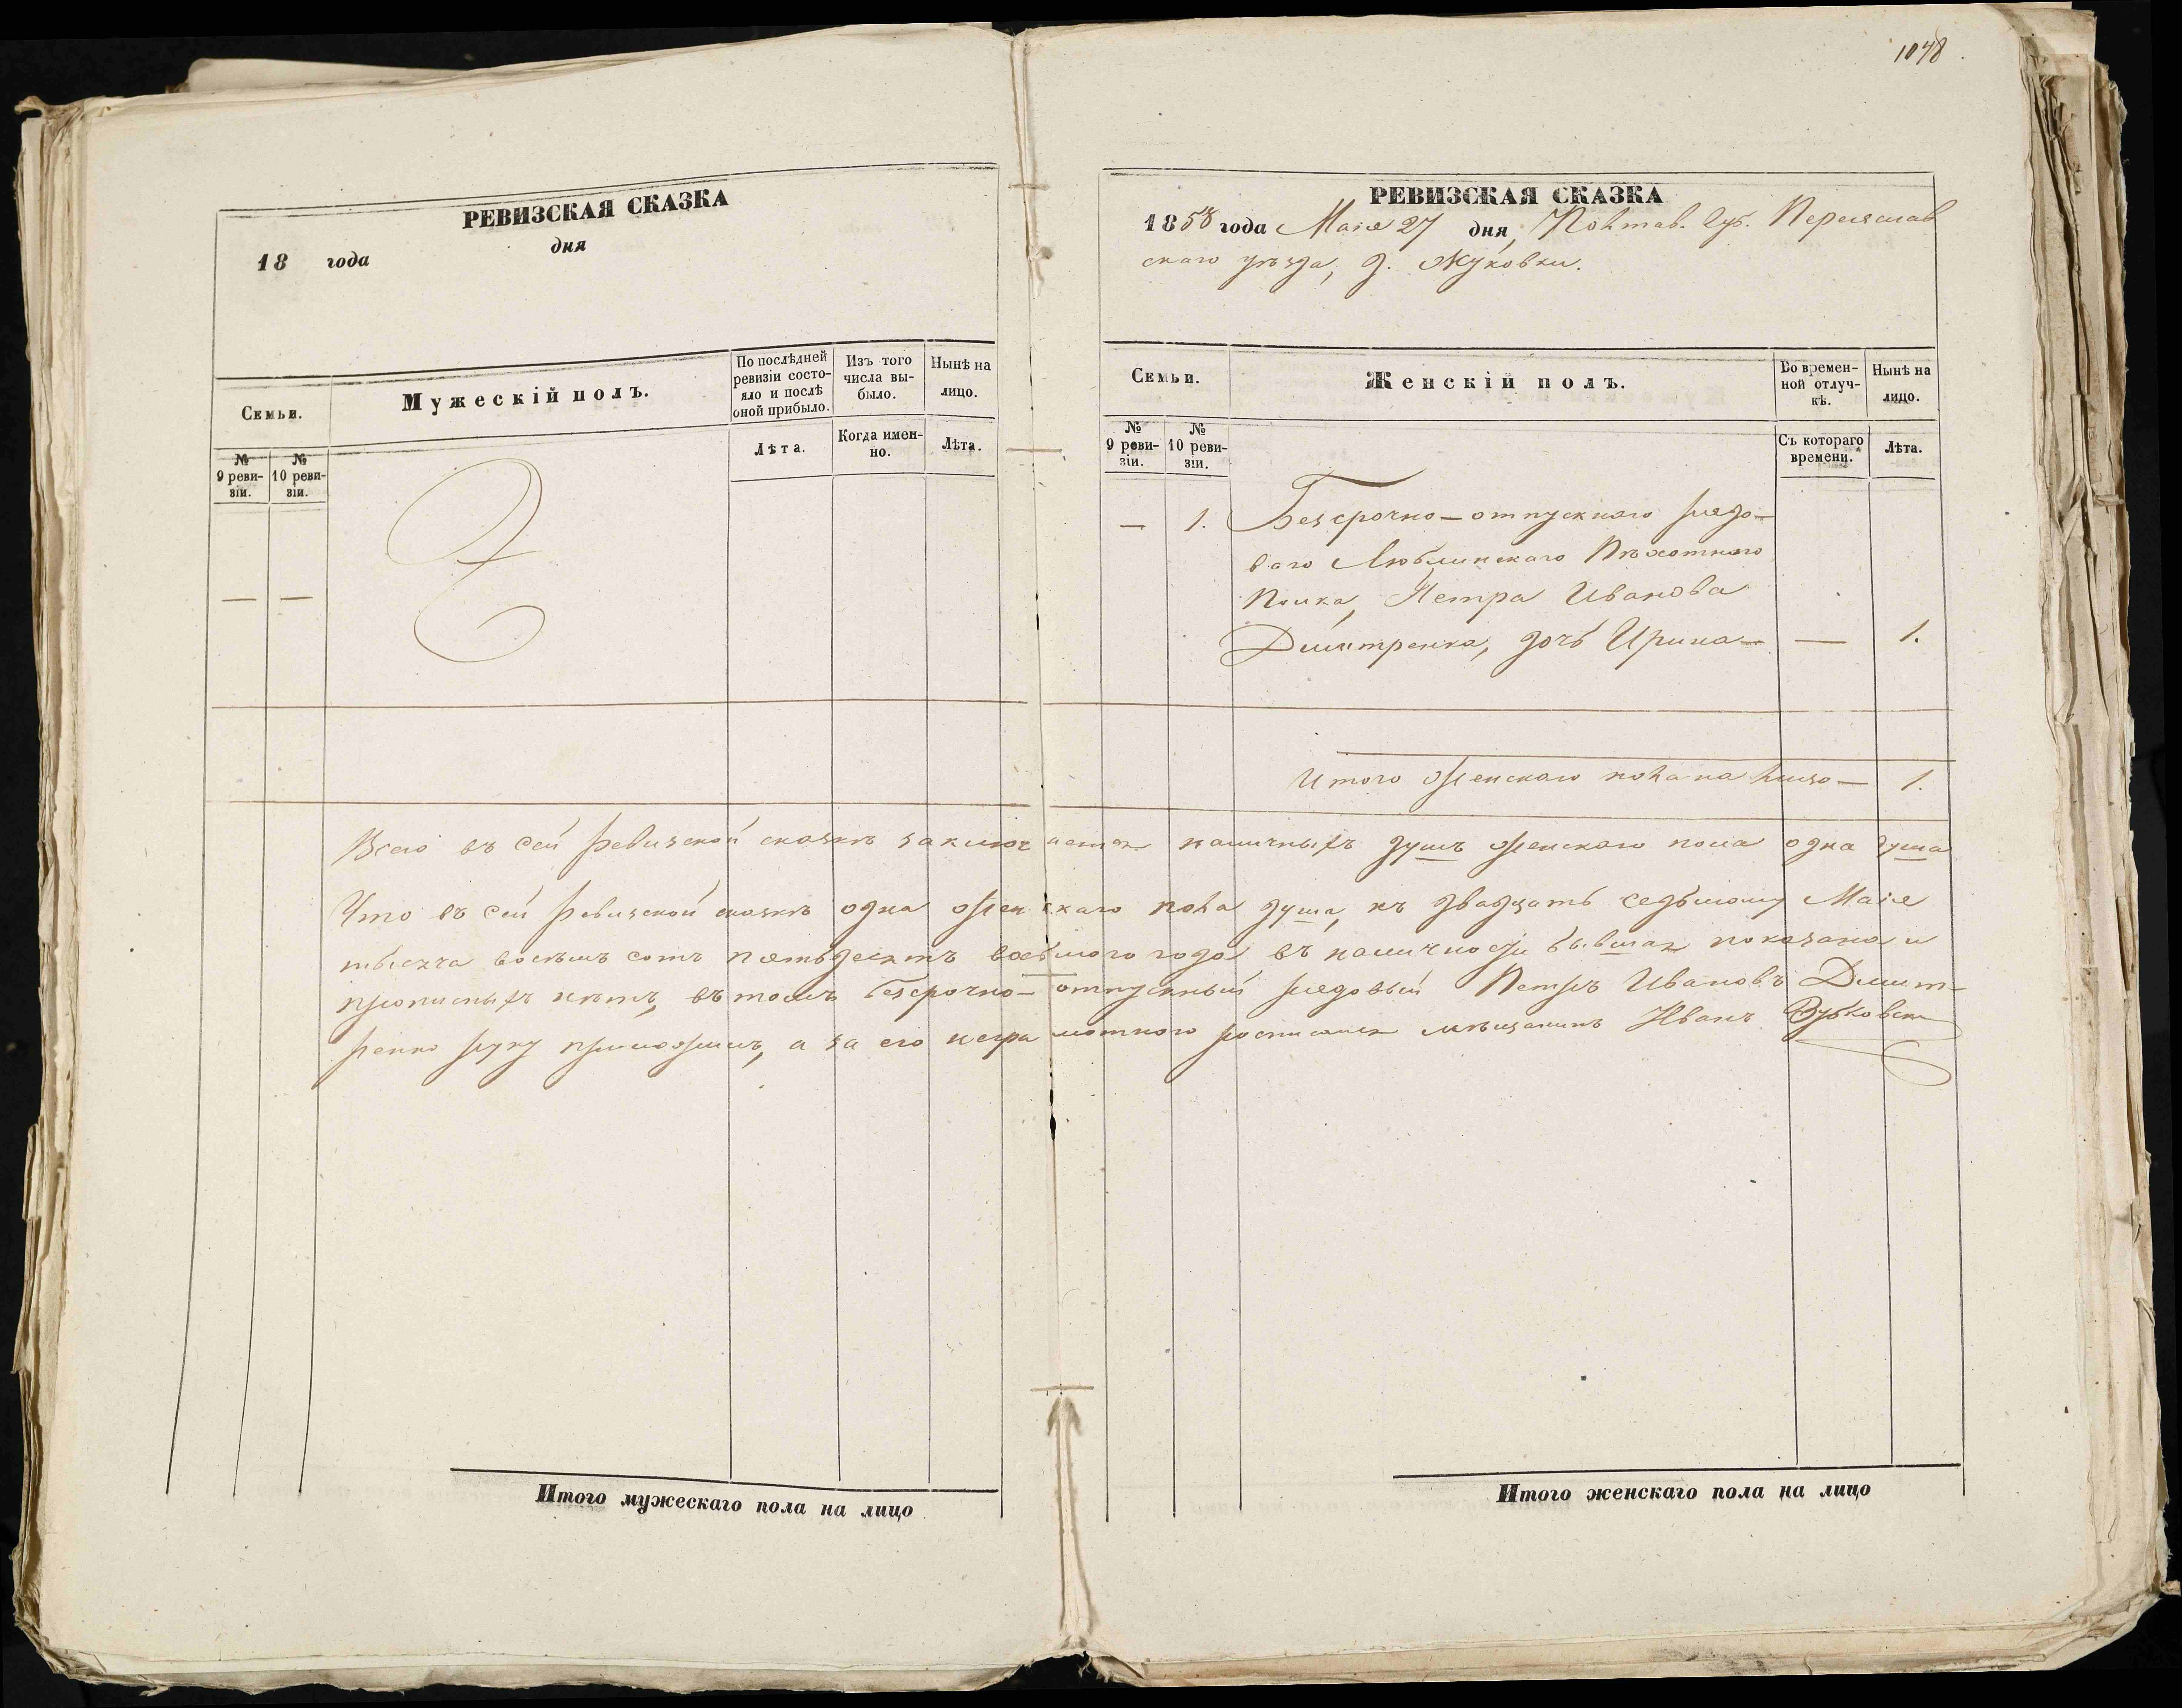 1048
РЕВИЗСКАЯ СКАЗКА
18 года дня
Семьи.
Мужескій полъ.
По послѣдней ревизіи состояло и послѣ оной прибыло.
Изъ того числа выбыло.
Нынѣ на лицо.
№ 9 ревизіи.
№ 10 ревизіи.
Лѣта.
Когда именно.
Лѣта.
— —
РЕВИЗСКАЯ СКАЗКА
1858 года Маія 27 дня, Полтав. Губ. Переяслав
скаго уѣзда, д. Жуковки.
Семьи.
Женскій полъ.
Во временной отлучкѣ.
Нынѣ на лицо.
№ 9 ревизіи.
№ 10 ревизіи.
Съ котораго времени.
Лѣта.
— 1. Безсрочно-отпускнаго рядо-
ваго Люблинскаго Пѣхотнаго
Полка, Петра Иванова
Дмитренка, дочь Ирина — — 1.
Итого женскаго пола на лицо — 1.
Всего въ сей ревизской сказкѣ заключается наличныхъ душъ женскаго пола одна душа
Что въ сей ревизской сказкѣ одна женскаго пола душа, къ двадцать седьмому Маія
тысяча восемь сотъ пятьдесятъ восьмого года въ наличности бывшая показана и
прописныхъ нѣтъ, въ томъ безсрочно-отпускный рядовый Петръ Ивановъ Дмит-
ренко руку приложилъ, а за его неграмотнаго росписался мѣщанинъ Иванъ
Итого мужескаго пола на лицо
Итого женскаго пола на лицо